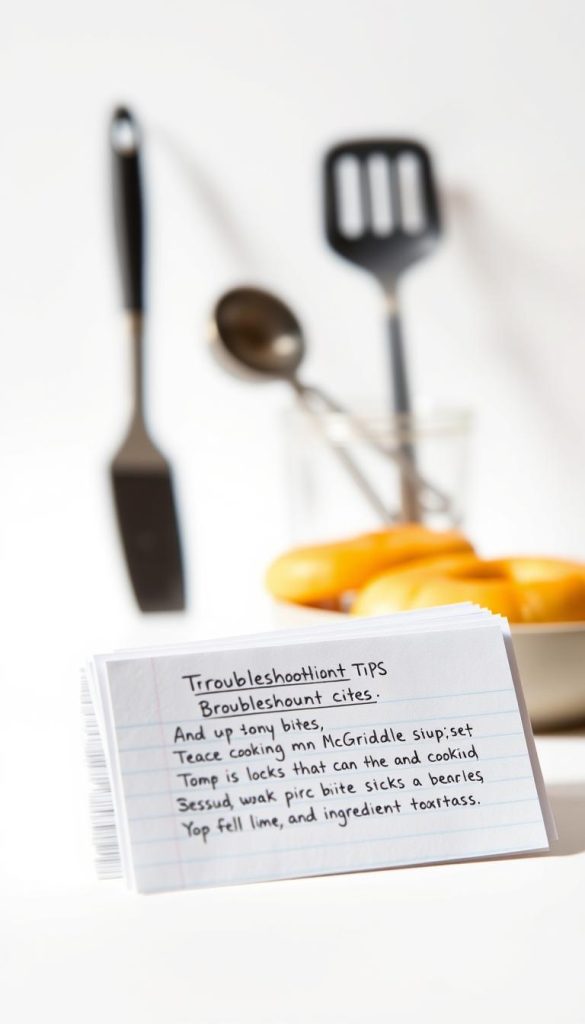 Trroubleshootliont TiPS
Broubleshount cites.
And up tony bites,
Teace cooking mn McGriddle siup;set
Tomp is locks that can the and cookid,
Sessud, wak pirc biite sicks a bearles,
Yop fell lime, and ingredient toxrtass.